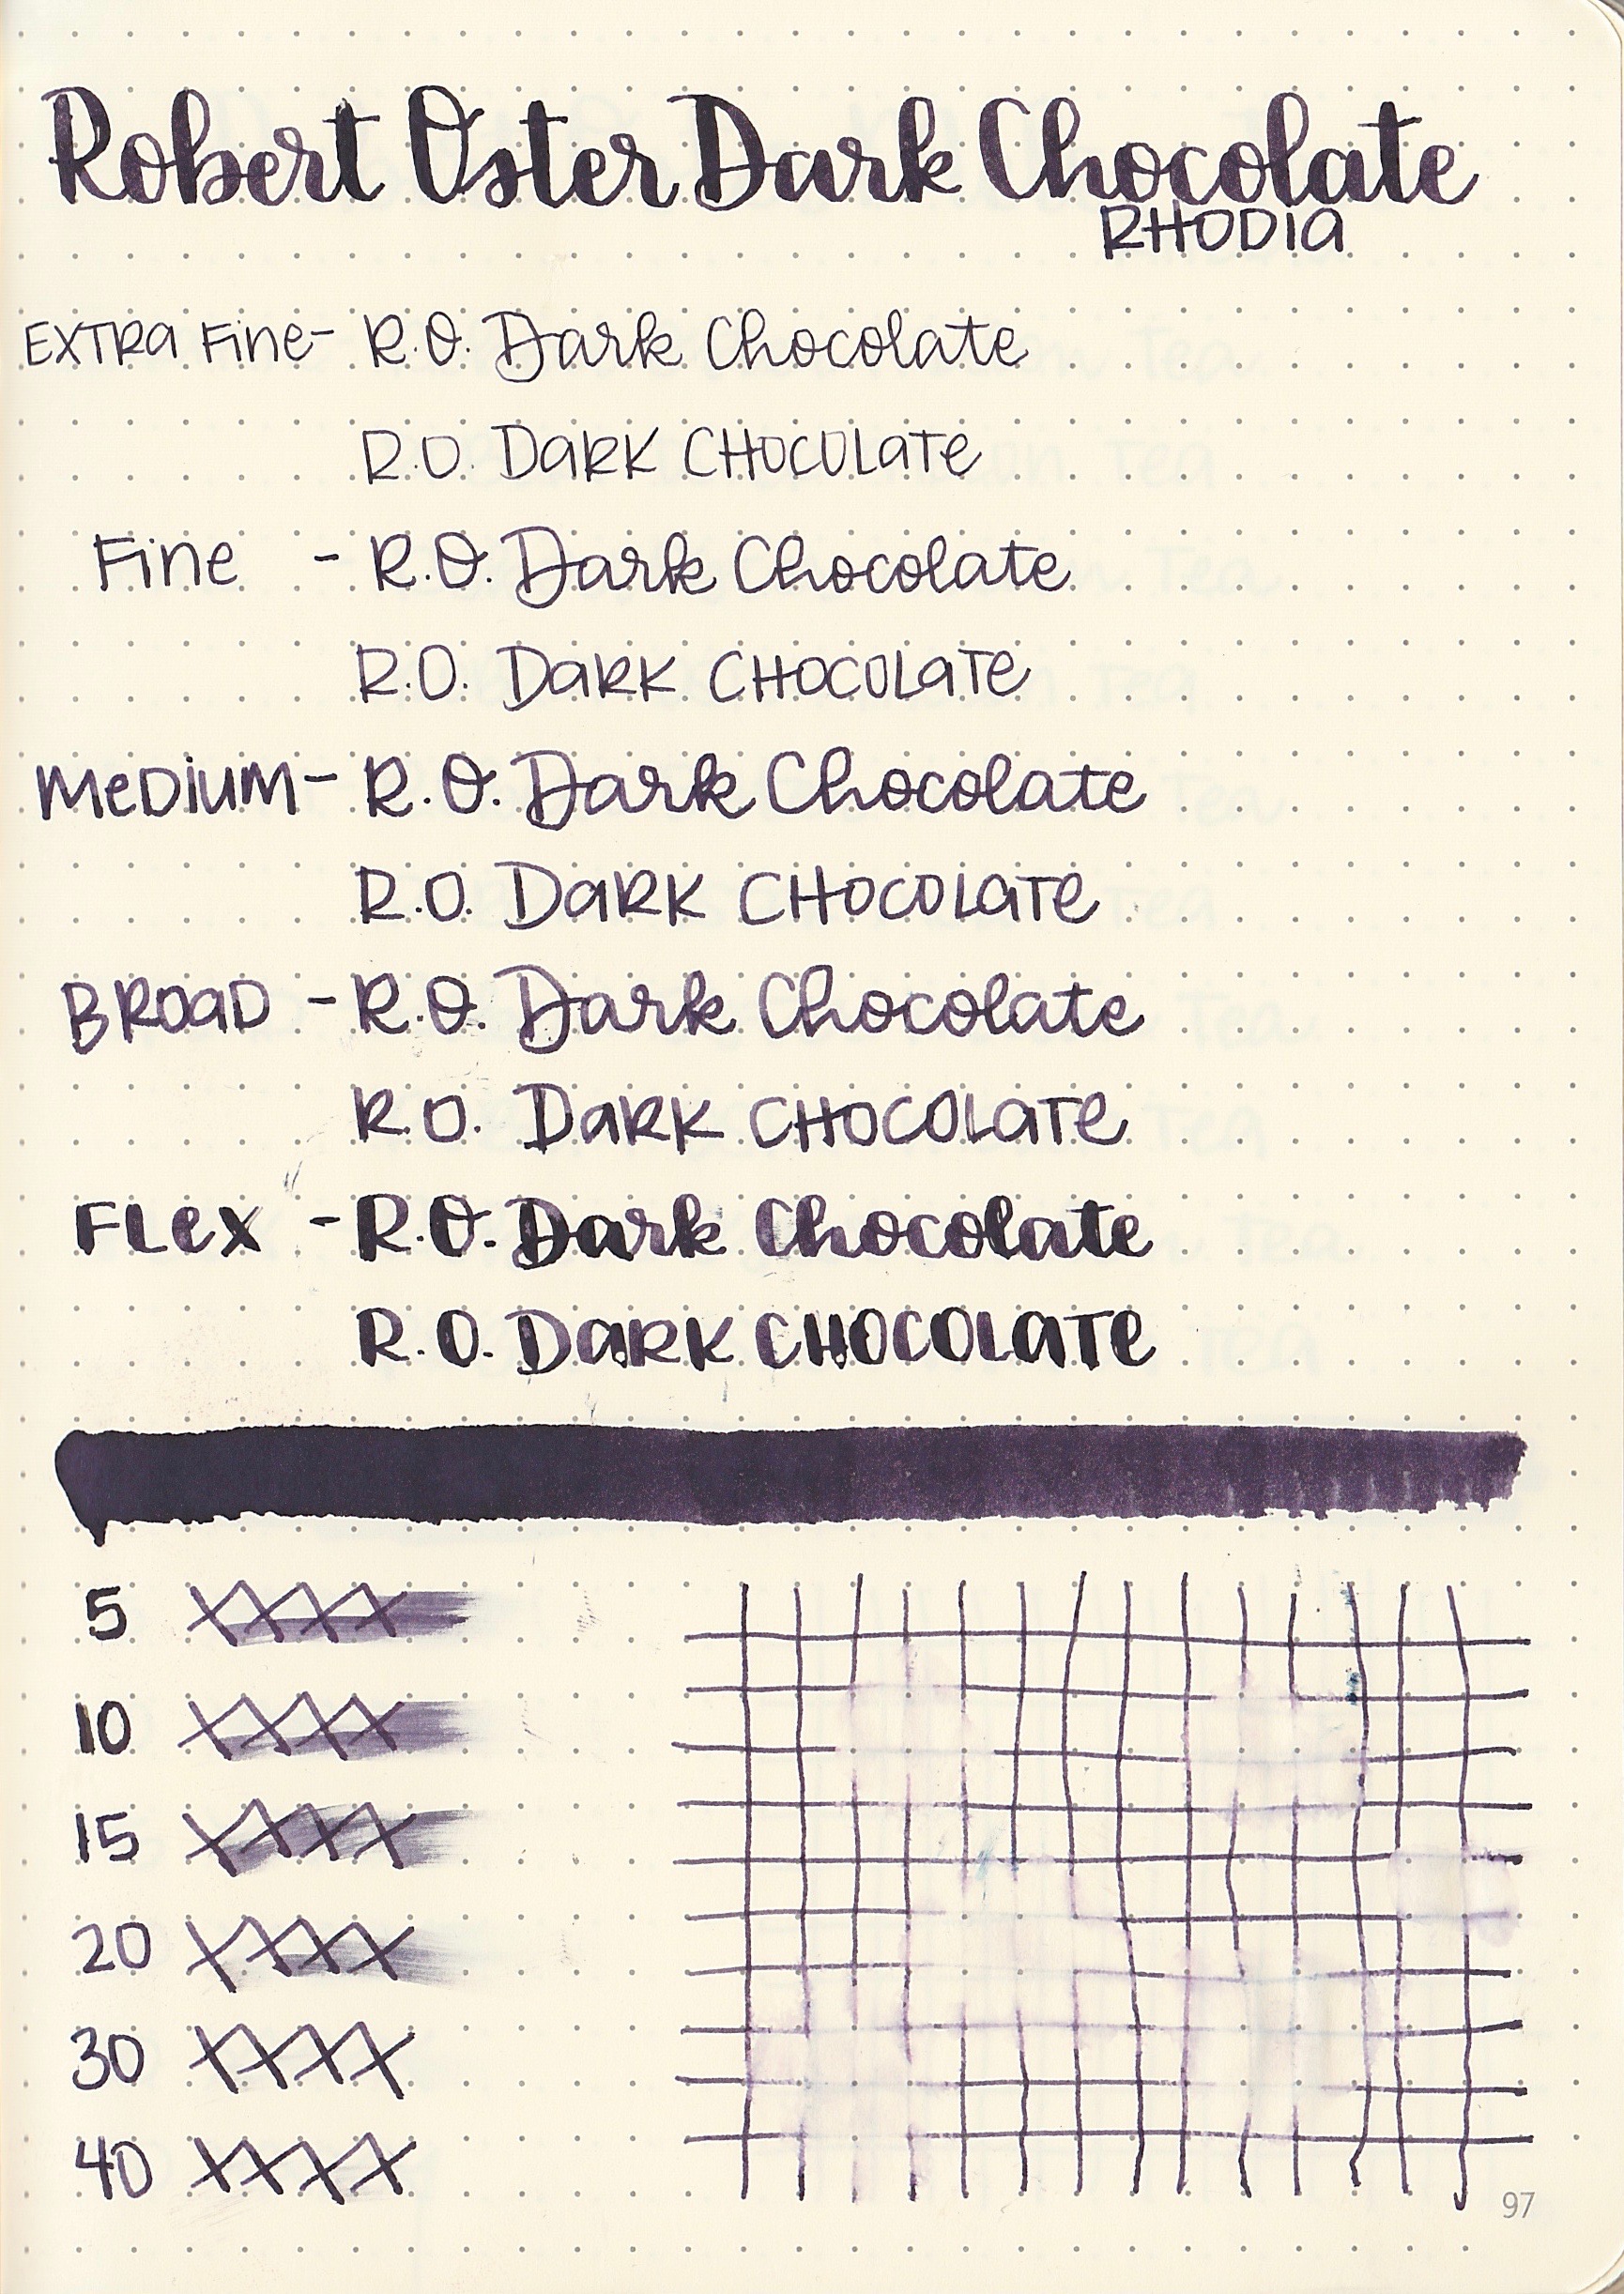 Robert Oster Dark Chocolate
RHODIA
EXTRA FINe - R.O. Dark Chocolate
R.O. DARK CHOCOLATe
FINe - R.O. Dark Chocolate
R.O. DARK CHOCOLATe
MeDIUM - R.O. Dark Chocolate
R.O. DARK CHOCOLATe
BROAD - R.O. Dark Chocolate
R.O. DARK CHOCOLATe
FLeX - R.O. Dark Chocolate
R.O. DARK CHOCOLATe
5 XXXX
10 XXXX
15 XXXX
20 XXXX
30 XXXX
40 XXXX
97